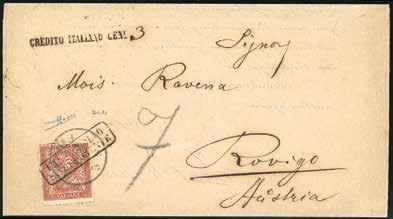 CREDITO ITALIANO CENT. 3
Signor
Mois. Ravena
7
Rovigo
Austria
ITALIANE